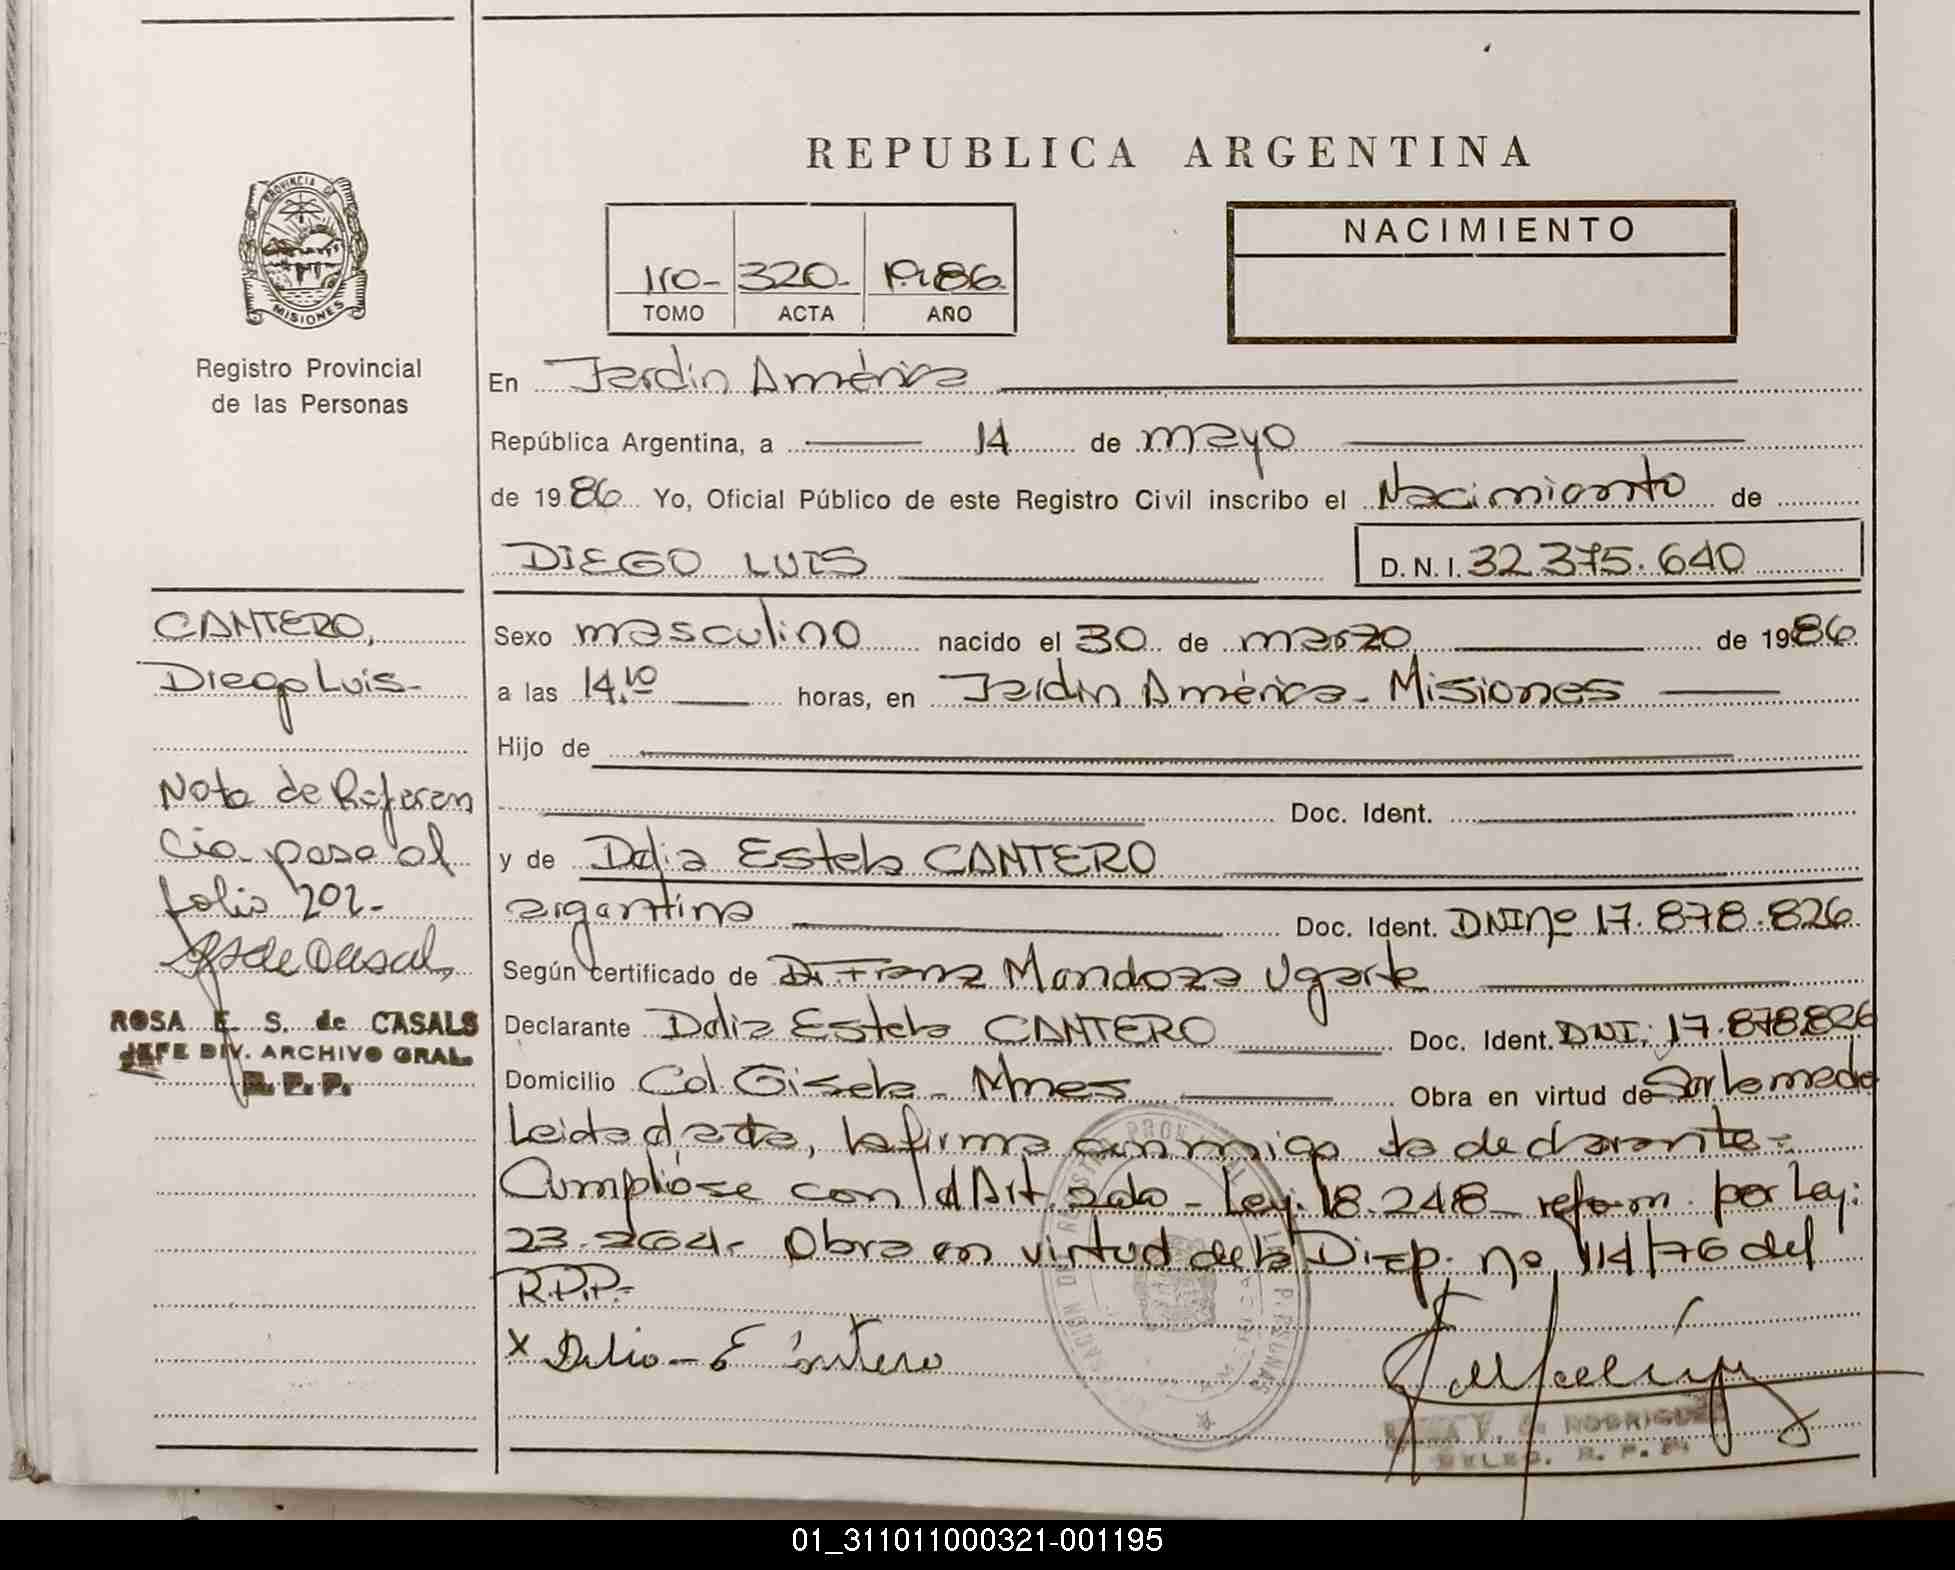 REPUBLICA ARGENTINA
PROVINCIA DE
MISIONES
Registro Provincial
de las Personas
1ro- 320- 1986
TOMO ACTA AÑO
NACIMIENTO
En Jardín América
República Argentina, a 14 de mayo
de 1986 Yo, Oficial Público de este Registro Civil inscribo el Nacimiento de
DIEGO LUIS D.N.I. 32.375.640
CANTERO,
Diego Luis-
Nota de Referen
cia pasa al
folio 202-
ROSA E. S. de CASALS
JEFE DIV. ARCHIVO GRAL.
R. P. P.
Sexo masculino nacido el 30 de marzo de 1986
a las 14,10 horas, en Jardín América- Misiones
Hijo de
Doc. Ident.
y de Delia Estela CANTERO
argentina Doc. Ident. DNI nº 17.878.826
Según certificado de Dr. Franz Mendoza Ugarte
Declarante Delia Estela CANTERO Doc. Ident. DNI: 17.878.826
Domicilio Col. Gisela- Mnes Obra en virtud de Ser la madre
Leida el acta, la firma conmigo la declarante-
Cumplióse con el Art. 2do- Ley: 18.248- reform. por Ley:
23.264- Obra en virtud de la Disp. nº 114/76 del
R.P.P.-
x Delia-E Cantero
RODRIGUEZ
DELEG. R. P. P.
01_311011000321-001195